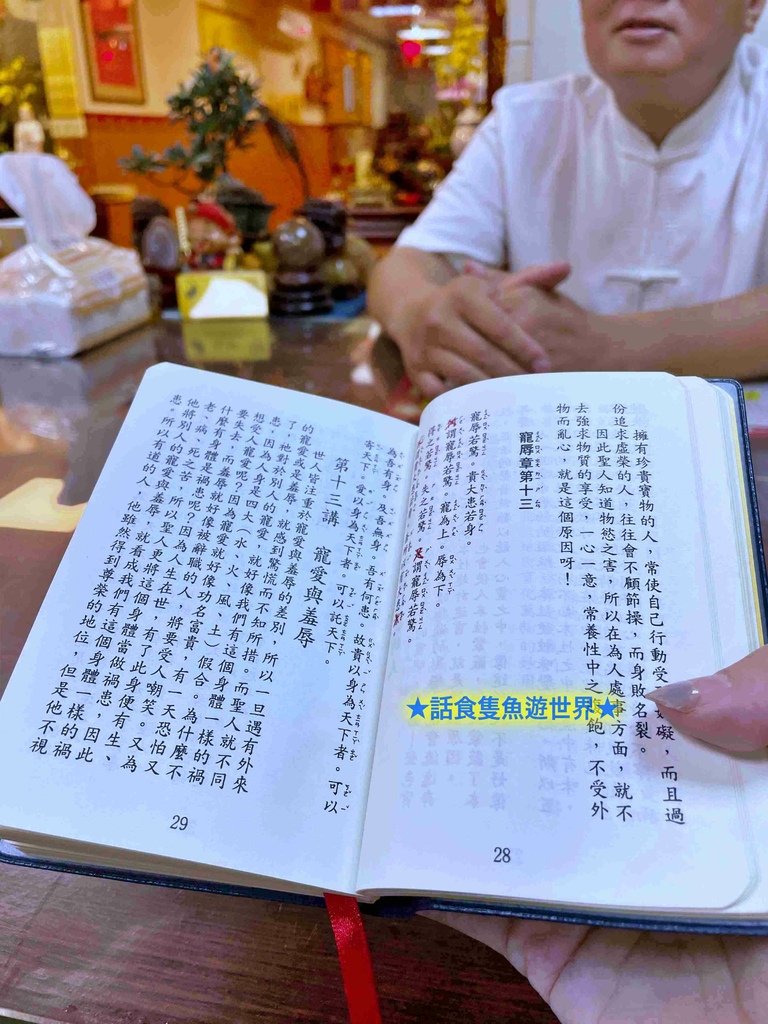 擁有珍貴寶物的人,常使自己行動受 礙,而且過
份追求虛榮的人,往往會不顧節操,而身敗名裂。
因此聖人知道物慾之害,所以在為人處事方面,就不
去強求物質的享受,一心一意,常養性中之 飽,不受外
物而亂心,就是這個原因呀!
寵辱章第十三
寵辱若驚。貴大患若身。
何謂寵辱若驚。寵為上。辱為下。
得之若驚。失之若驚。是謂寵辱若驚。
★話食隻魚遊世界★
28
為吾有身。及吾無身。吾有何患。故貴以身為天下者。可以
寄天下。愛以身為天下者。可以託天下。
第十三講 寵愛與羞辱
世人皆注重於寵愛與羞辱的差別,所以一旦遇有外來
的寵愛或是羞辱,就感到驚慌而不知所措。而聖人就不同
了,他對於別人的寵愛,就好像我們有這個身體一樣的禍
患,因為人身是四大(水、火、風、土)假合。為什麼不
想受人寵愛呢?因為寵愛就好像功名富貴,有一天恐怕又
要失去,而羞辱就好像被辭職的人,將要受人嘲笑。又為
什麼有身體是禍患呢?因為人生在世,有了此身便有生、
老、病、死之苦,所以聖人更將這個身體當做禍患,因此
他將別人的寵愛與羞辱,就看成我們有這個身體一樣的禍
患。所以有道的人,他雖然得到尊榮的地位,但是他不視
29